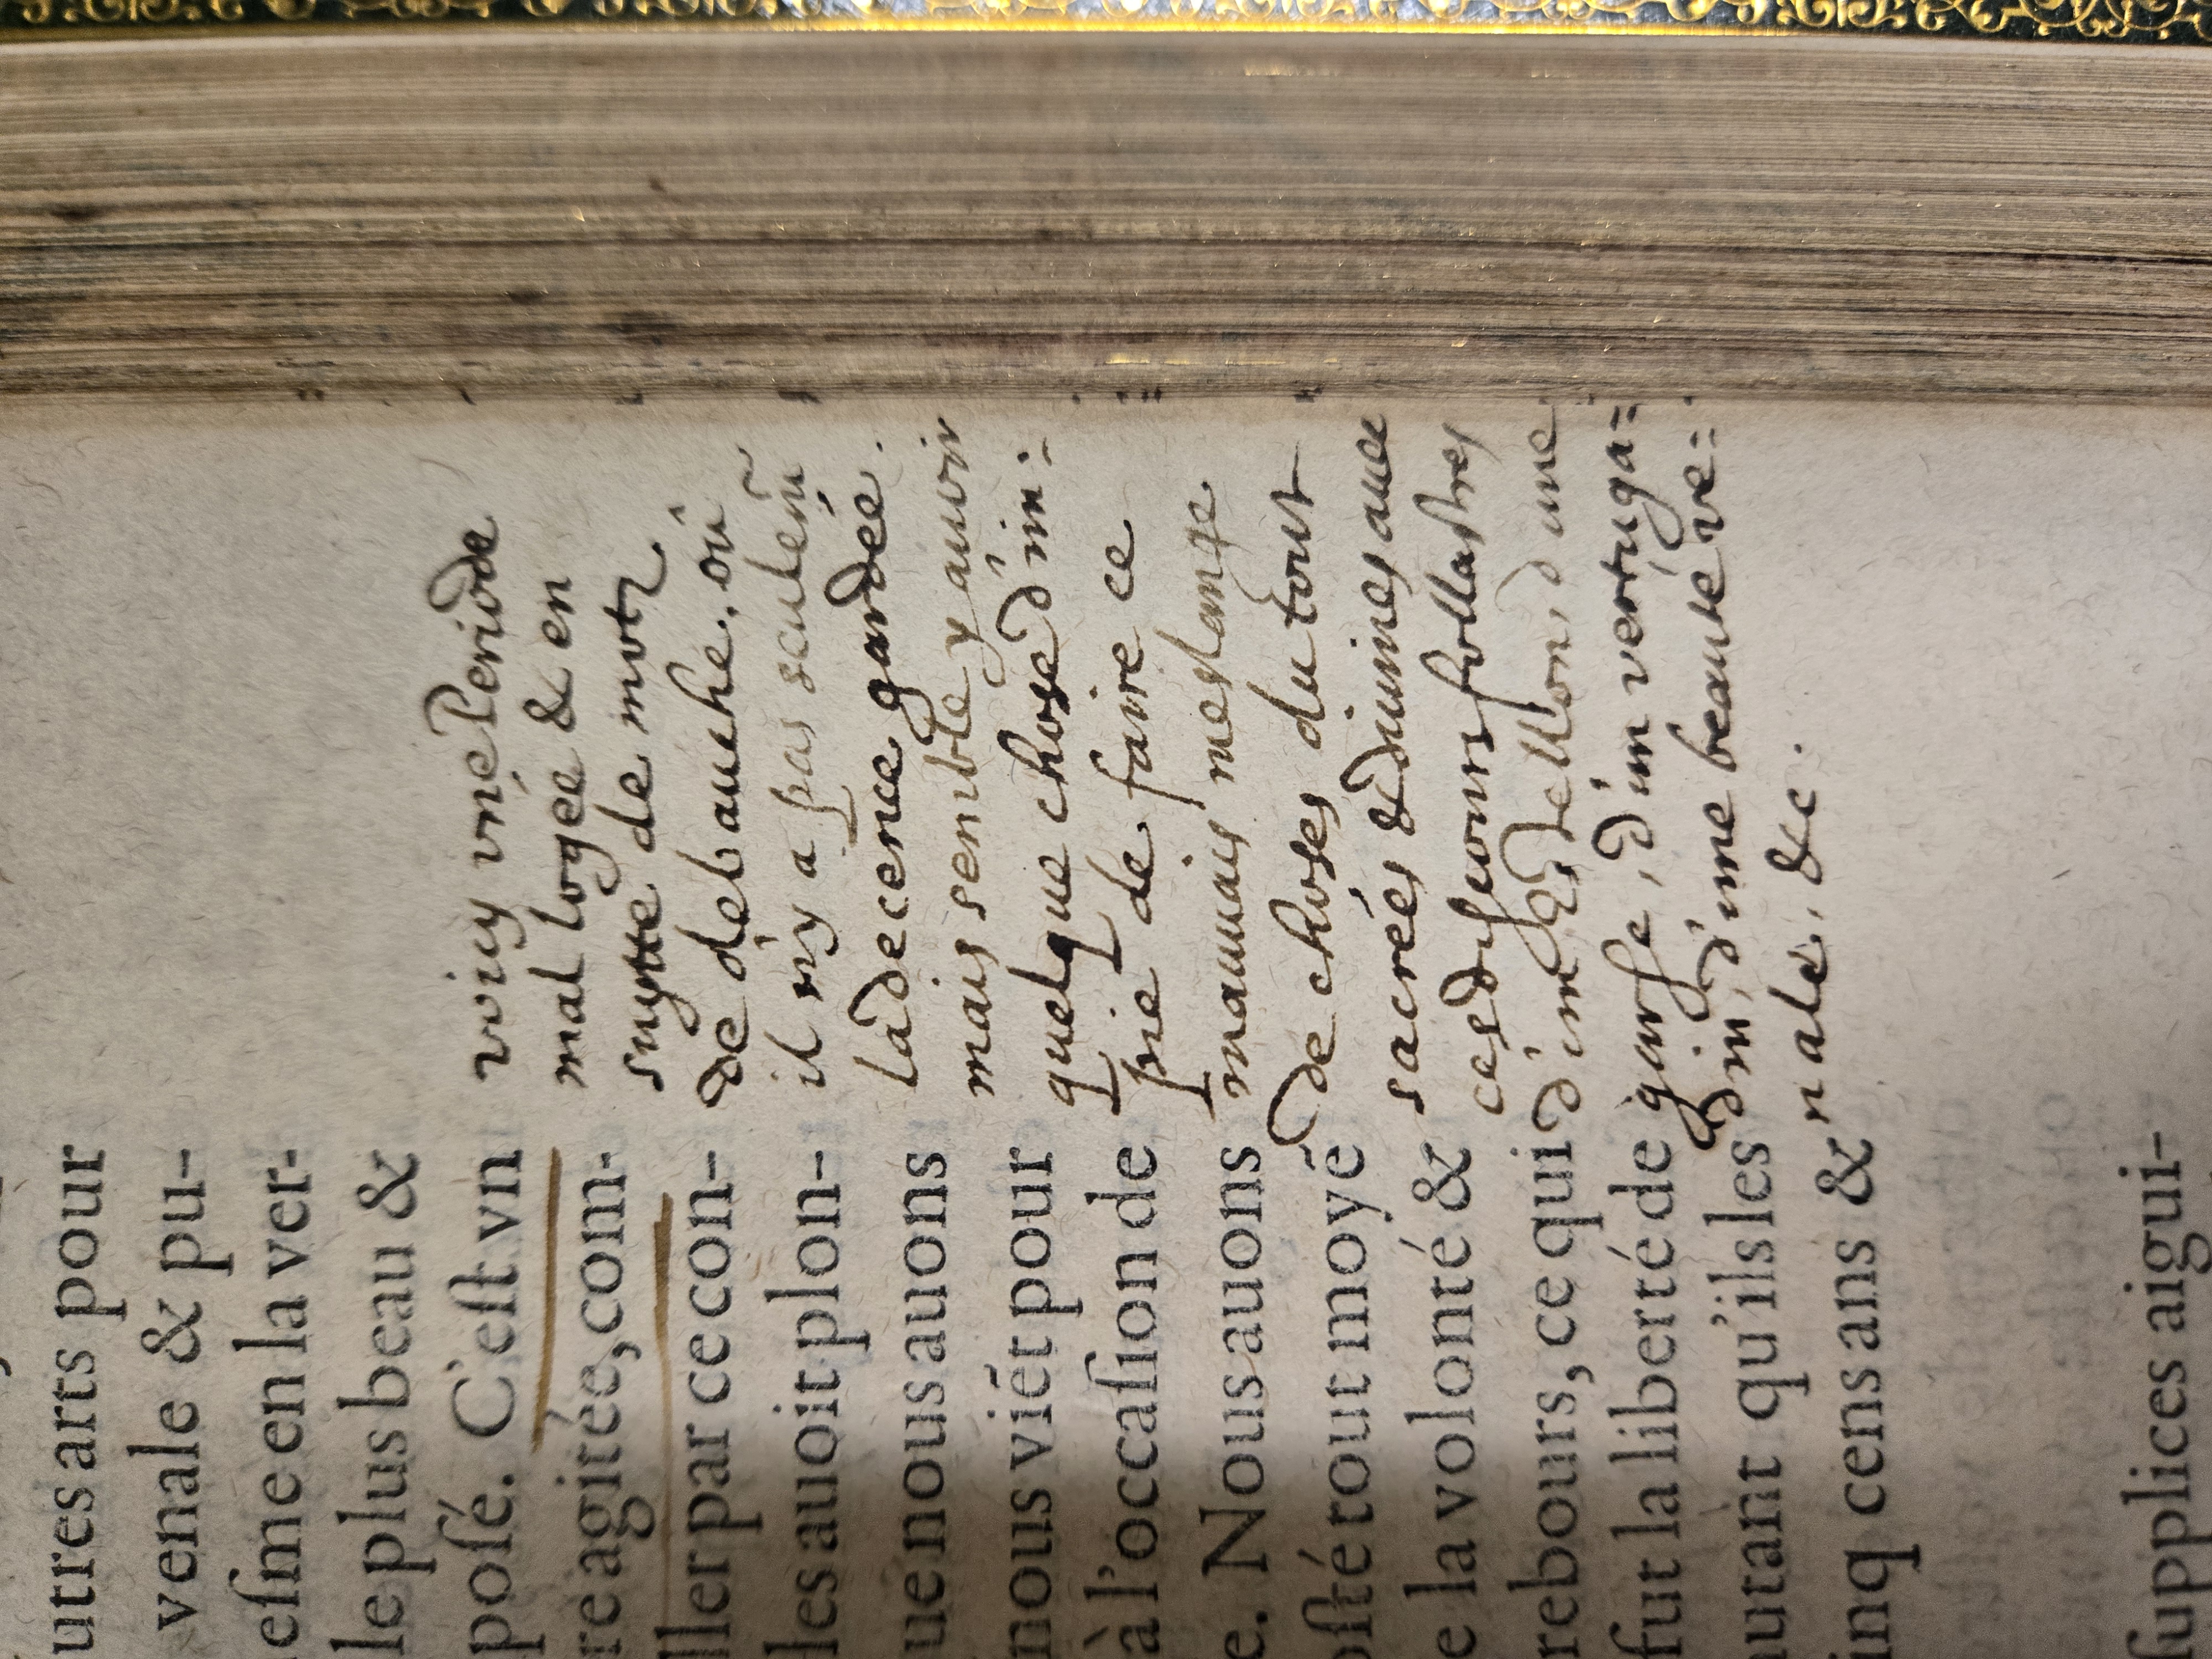 utres arts pour
venale & pu-
eſme en la ver-
le plus beau &
poſé. C'eſt vn
re agitée, com-
ller par ce con-
les auoit plon-
ue nous auons
nous viẽt pour
à l'occaſion de
e. Nous auons
oſté tout moyẽ
e la volonté &
rebours, ce qui
fut la liberté de
autant qu'ils les
inq cens ans &
ſupplices aigui-
voicy vne Periode
mal logee & en
suytte de motz
de debauche. où
il n'y a pas seulem̃
la decence gardée.
mais semble y auoir
quelque chose d'im:
pie de faire ce
mauuais meslange
de choses du tout
sacrées & diuines auec
ces discours follastres
d'un d'une
garse, d'un vertuga=
din, d'une beauté ve=
nale, &c.